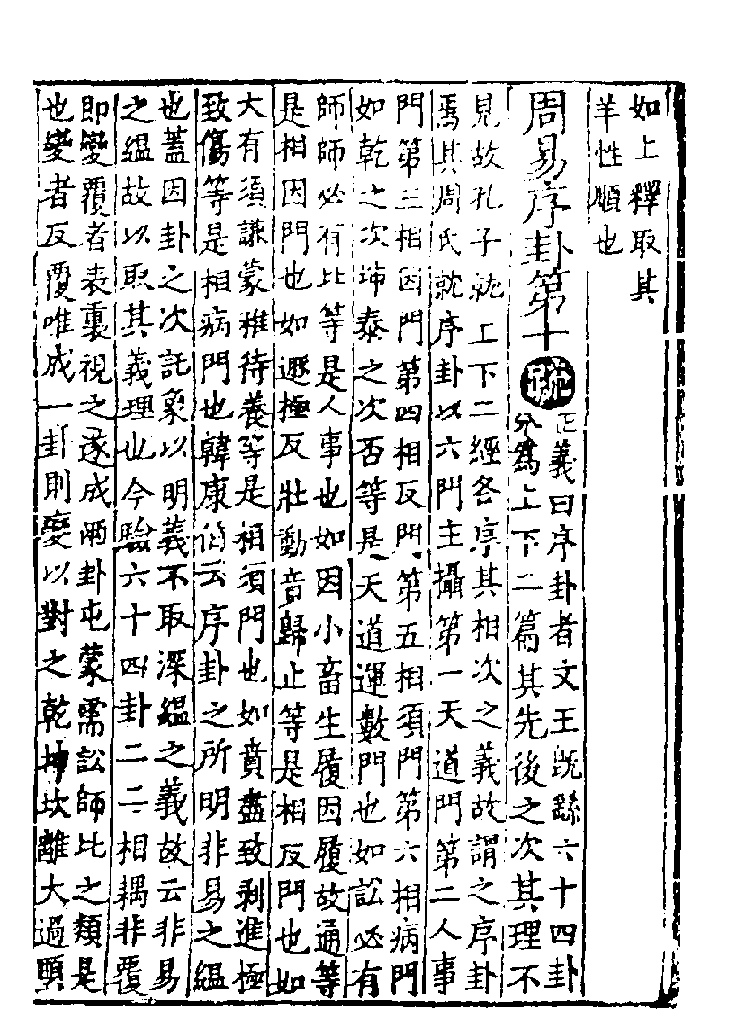 如上釋取其
羊性順也
周易序卦第十
疏
正義曰序卦者文王旣繇六十四卦
分爲上下二篇其先後之次其理不
見故孔子就上下二經各序其相次之義故謂之序卦
焉其周氏就序卦以六門主攝第一天道門第二人事
門第三相因門第四相反門第五相須門第六相病門
如乾之次坤泰之次否等是天道運數門也如訟必有
師師必有比等是人事也如因小畜生履因履故通等
是相因門也如遯極反壯動竟歸止等是相反門也如
大有須謙蒙稚待養等是相須門也如賁盡致剥進極
致傷等是相病門也韓康伯云序卦之所明非易之緼
也蓋因卦之次託象以明義不取深緼之義故云非易
之緼故以取其義理也今驗六十四卦二二相耦非覆
即變覆者表裏視之遂成兩卦屯蒙需訟師比之類是
也變者反覆唯成一卦則變以對之乾坤坎離大過頤